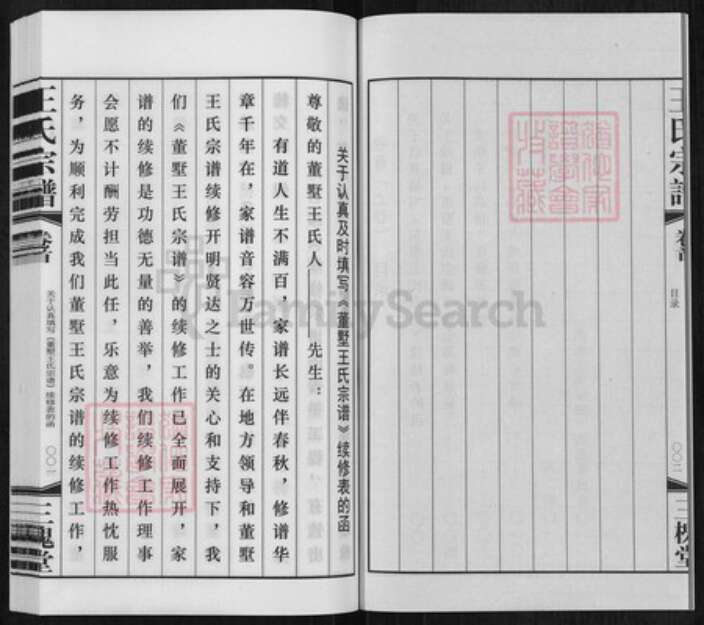 王氏宗譜
目录
〇〇二
三槐堂
关于认真及时填写《董墅王氏宗谱》续修表的函
尊敬的董墅王氏人——先生：
有道人生不满百，家谱长远伴春秋，修谱华
章千年在，家谱音容万世传。在地方领导和董墅
王氏宗谱续修开明贤达之士的关心和支持下，我
们《董墅王氏宗谱》的续修工作已全面展开，家
谱的续修是功德无量的善举，我们续修工作理事
会愿不计酬劳担当此任，乐意为续修工作热忱服
务，为顺利完成我们董墅王氏宗谱的续修工作，
王氏宗譜
关于认真填写《董墅王氏宗谱》续修表的函
三槐堂
FamilySearch